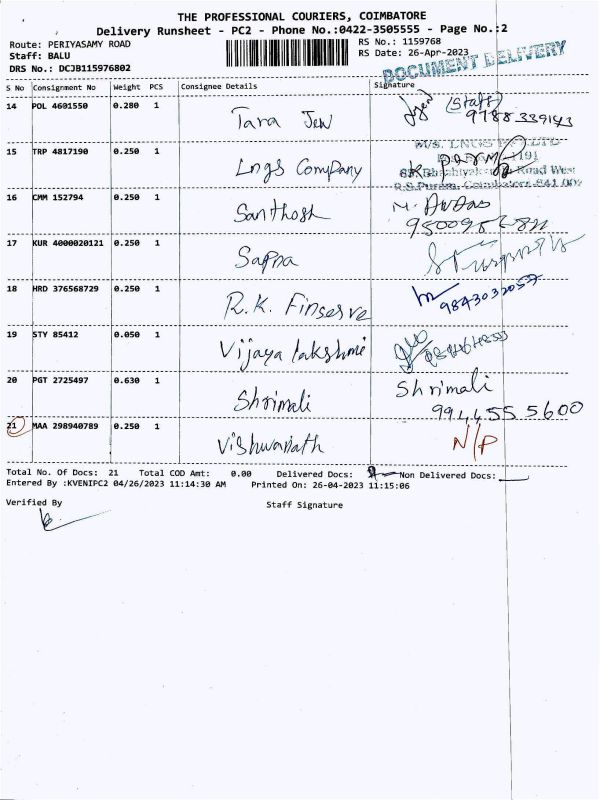 THE PROFESSIONAL COURIERS, COIMBATORE
Delivery Runsheet - PC2 - Phone No.:0422-3505555 - Page No.:2
Route: PERIYASAMY ROAD RS No.: 1159768
Staff: BALU RS Date: 26-Apr-2023
DRS No.: DCJB115976802
DOCUMENT DELIVERY
S No Consignment No Weight PCS Consignee Details Signature
14 POL 4601550 0.280 1 Tara Jew (Staff)
9788339143
15 TRP 4817190 0.250 1 Lngs Company
M/S. LNGS
Road West
R.S.Puram, Coimbatore-641 002
16 CMM 152794 0.250 1 Santhosh
17 KUR 4000020121 0.250 1 Sapna
18 HRD 376568729 0.250 1 R.K. Finserve 9843032057
19 STY 85412 0.050 1 Vijaya lakshmi
20 PGT 2725497 0.630 1 Shrimali Shrimali
9944555600
21 MAA 298940789 0.250 1 Vishwanath N/P
Total No. Of Docs: 21 Total COD Amt: 0.00 Delivered Docs: Non Delivered Docs:
Entered By :KVENIPC2 04/26/2023 11:14:30 AM Printed On: 26-04-2023 11:15:06
Verified By Staff Signature